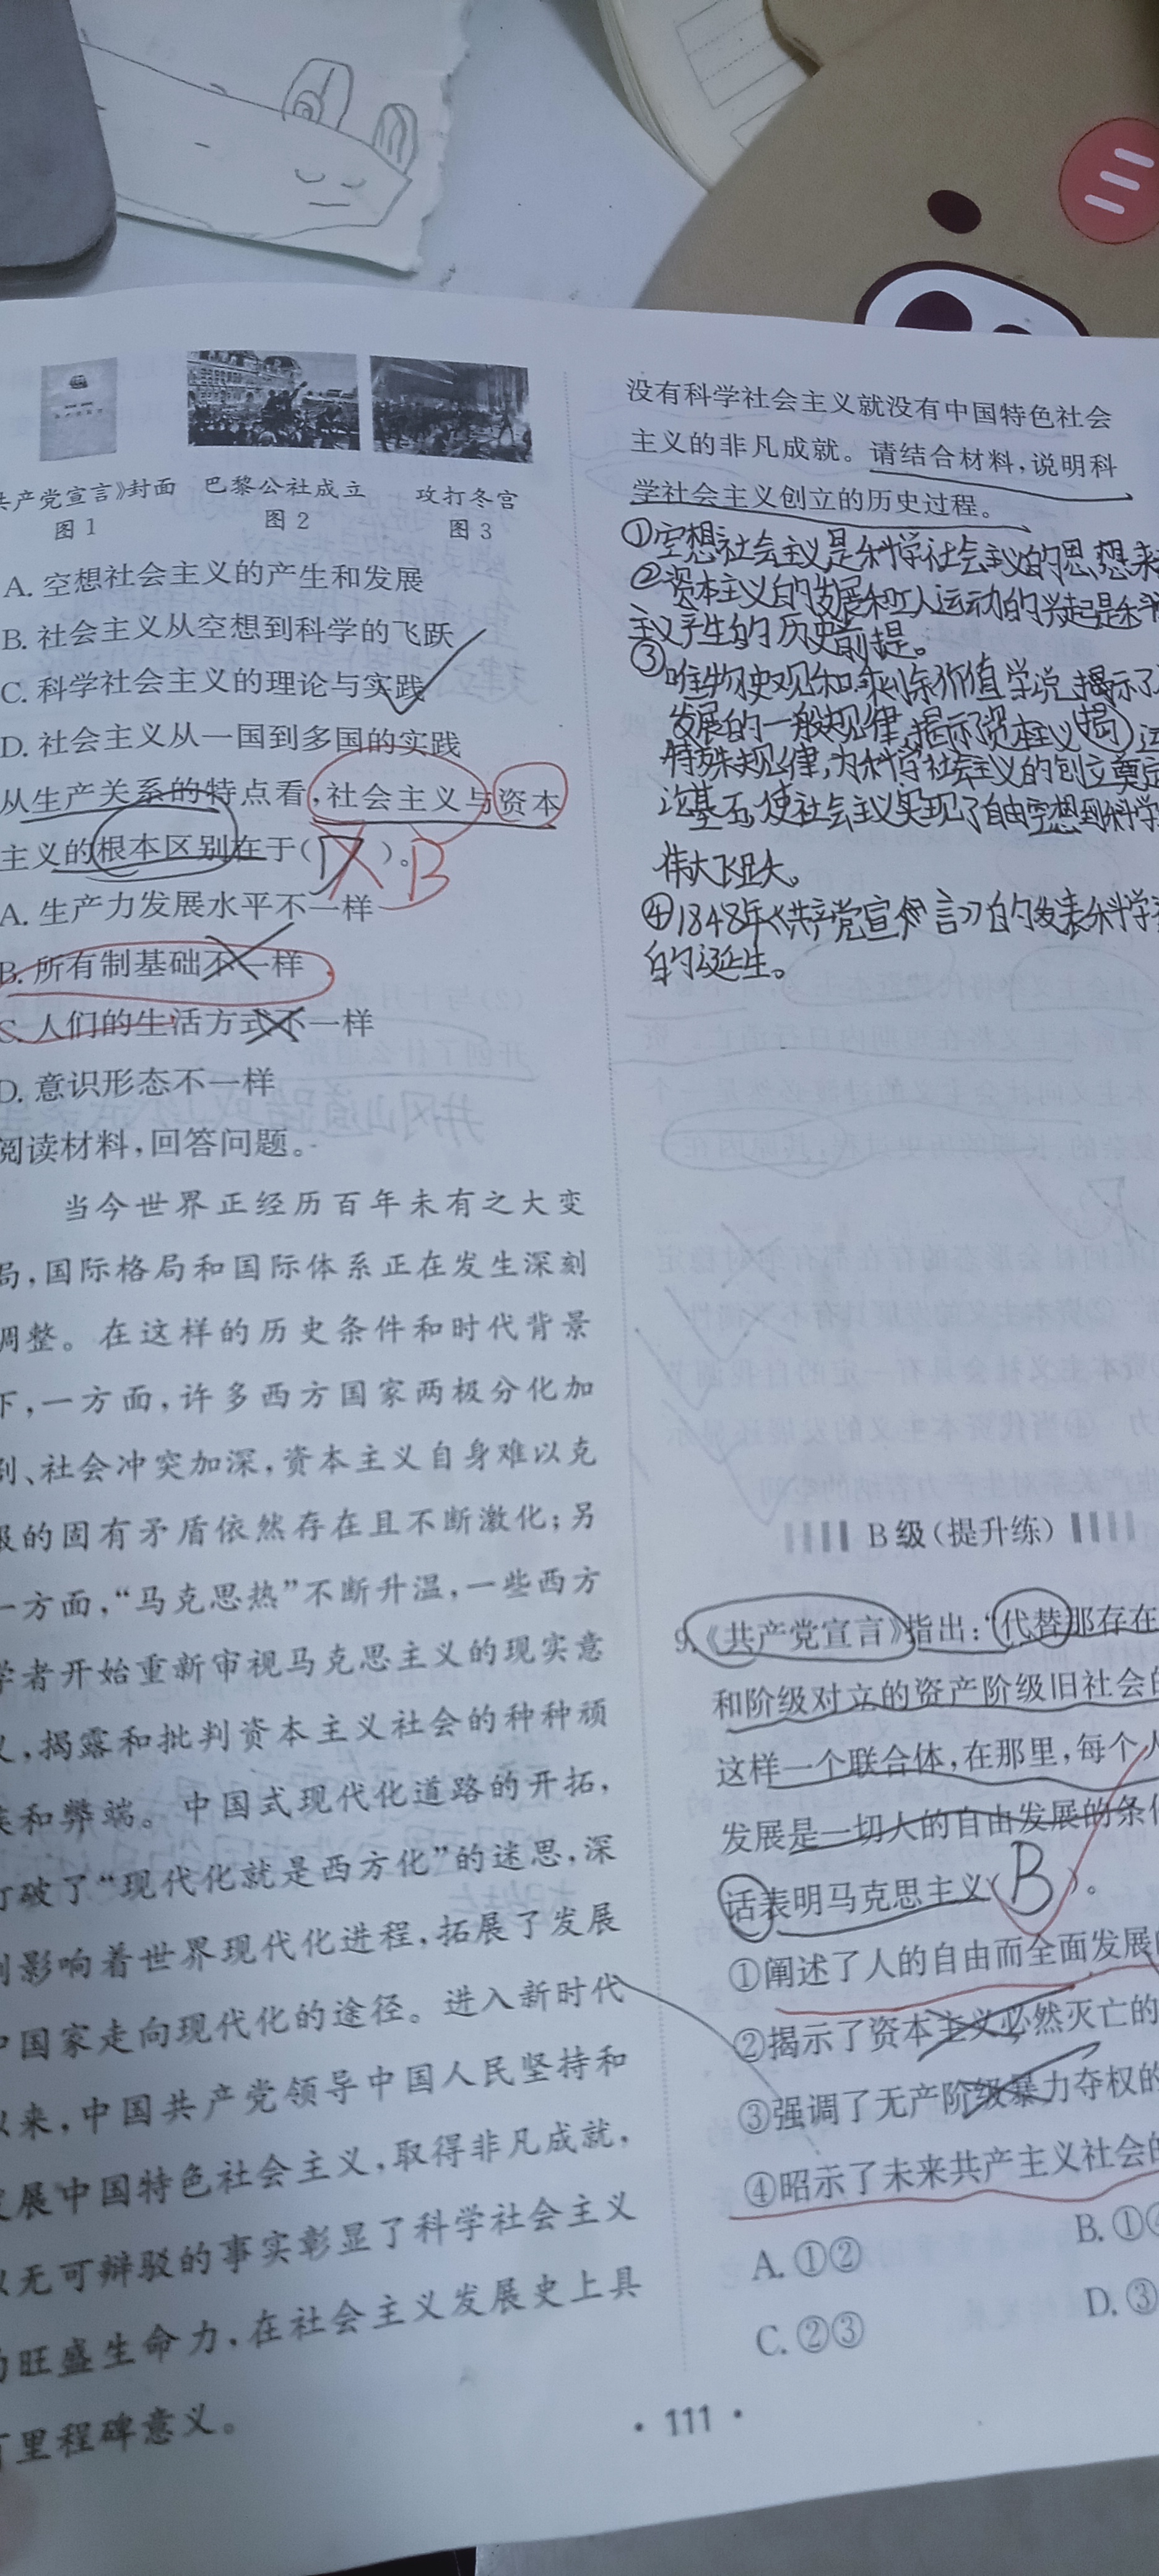 共产党宣言》封面
图1
巴黎公社成立
图2
攻打冬宫
图3
A. 空想社会主义的产生和发展
B. 社会主义从空想到科学的飞跃
C. 科学社会主义的理论与实践
D. 社会主义从一国到多国的实践
从生产关系的特点看,社会主义与资本
主义的根本区别在于( )。B
A. 生产力发展水平不一样
B. 所有制基础不一样
C. 人们的生活方式不一样
D. 意识形态不一样
阅读材料,回答问题。
当今世界正经历百年未有之大变
局,国际格局和国际体系正在发生深刻
调整。在这样的历史条件和时代背景
下,一方面,许多西方国家两极分化加
剧、社会冲突加深,资本主义自身难以克
服的固有矛盾依然存在且不断激化;另
一方面,“马克思热”不断升温,一些西方
学者开始重新审视马克思主义的现实意
义,揭露和批判资本主义社会的种种顽
疾和弊端。中国式现代化道路的开拓,
打破了“现代化就是西方化”的迷思,深
刻影响着世界现代化进程,拓展了发展
中国家走向现代化的途径。进入新时代
以来,中国共产党领导中国人民坚持和
发展中国特色社会主义,取得非凡成就,
以无可辩驳的事实彰显了科学社会主义
的旺盛生命力,在社会主义发展史上具
有里程碑意义。
没有科学社会主义就没有中国特色社会
主义的非凡成就。请结合材料,说明科
学社会主义创立的历史过程。
①空想社会主义是科学社会主义的思想来
②资本主义的发展和工人运动的兴起是科学
主义产生的历史前提。
③唯物史观和剩余价值学说揭示了
发展的一般规律,揭示了资本主义 运
特殊规律,为科学社会主义的创立奠定
论基石,使社会主义实现了自由空想到科学
伟大飞跃。
④1848年《共产党宣言》的发表科学
的诞生。
B级(提升练)
9.《共产党宣言》指出:“代替那存在
和阶级对立的资产阶级旧社会的
这样一个联合体,在那里,每个人
发展是一切人的自由发展的条件
话表明马克思主义(B)。
①阐述了人的自由而全面发展
②揭示了资本主义必然灭亡的
③强调了无产阶级暴力夺权的
④昭示了未来共产主义社会的
A. ①②
B. ①④
C. ②③
D. ③
• 111 •